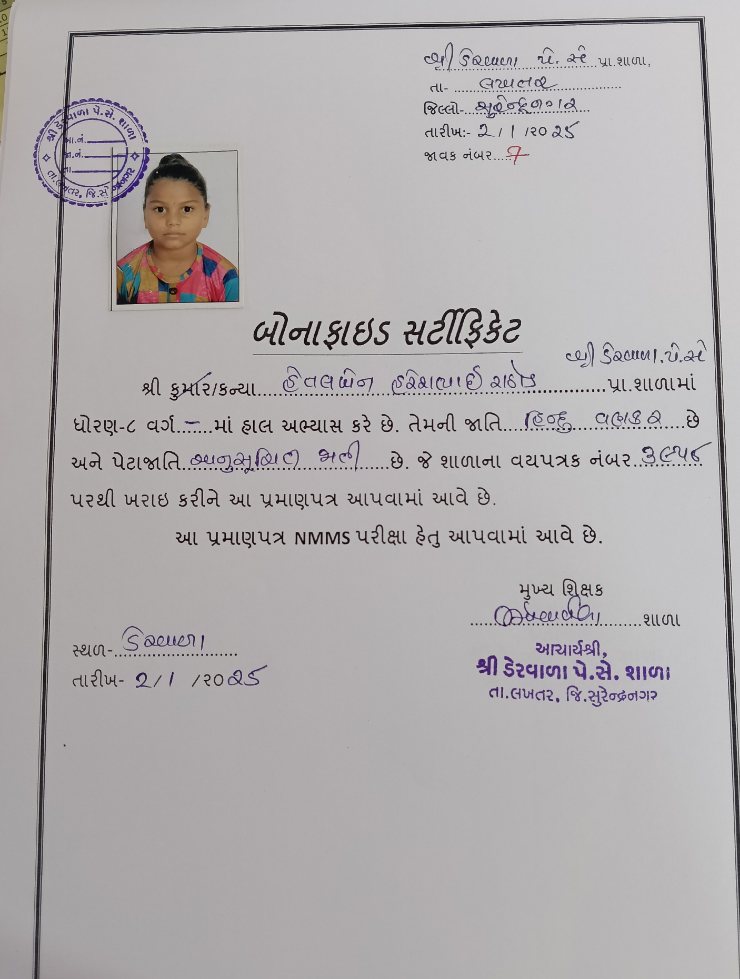 શ્રી ડેરવાળા પે. સે. પ્રા.શાળા,
તા- લખતર
જિલ્લો- સુરેન્દ્રનગર
તારીખ:- 2/1/2025
જાવક નંબર...7
શ્રી ડેરવાળા પે.સે. શાળા
આ.નં.
જા.નં.
તા.
તા.લખતર, જિ.સુરેન્દ્રનગર
બોનાફાઇડ સર્ટીફિકેટ
શ્રી ડેરવાળા.પે.સે
શ્રી કુમાર/કન્યા હેતલબેન હરેશભાઈ રાઠોડ પ્રા.શાળામાં
ધોરણ-૮ વર્ગ - માં હાલ અભ્યાસ કરે છે. તેમની જાતિ હિન્દુ વણકર છે
અને પેટાજાતિ અનુસૂચિત જાતી છે. જે શાળાના વયપત્રક નંબર
પરથી ખરાઇ કરીને આ પ્રમાણપત્ર આપવામાં આવે છે.
આ પ્રમાણપત્ર NMMS પરીક્ષા હેતુ આપવામાં આવે છે.
મુખ્ય શિક્ષક
શાળા
સ્થળ- ડેરવાળા
તારીખ- 2/1 /૨૦25
આચાર્યશ્રી,
શ્રી ડેરવાળા પે.સે. શાળા
તા.લખતર, જિ.સુરેન્દ્રનગર